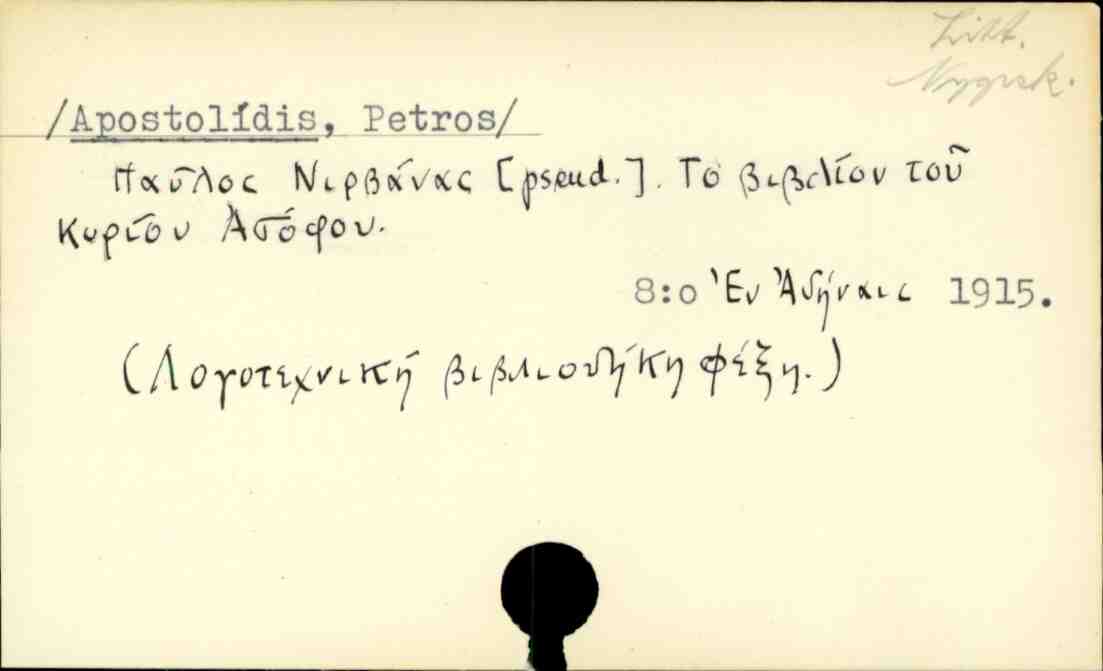 Litt.
Nygrek.
/Apostolídis, Petros/
Παῦλος Νιρβάνας [pseud.]. Τὸ βιβλίον τοῦ
Κυρίου Ἀσόφου.
8:o Ἐν Ἀθήναις 1915.
(Λογοτεχνική βιβλιοθήκη Φέξη.)